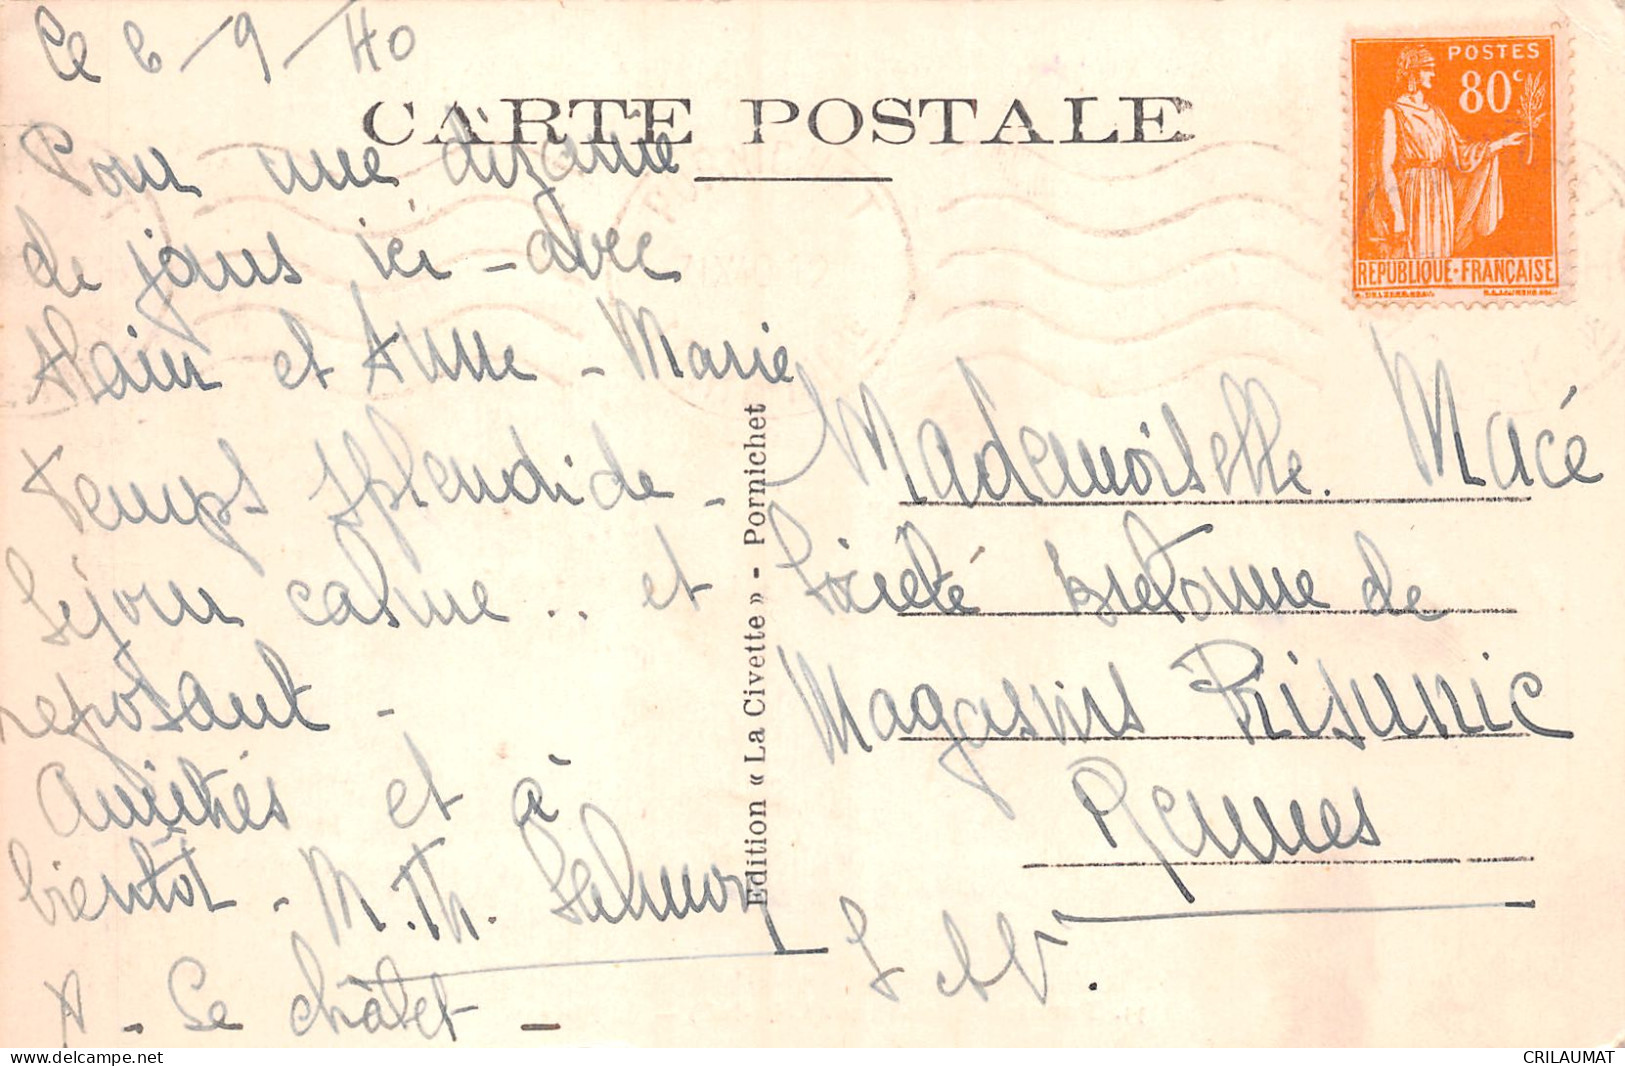 Ce 6/9/40
CARTE POSTALE
POSTES
80c
REPUBLIQUE·FRANÇAISE
Pour une dizaine
de jours ici - avec
Alain et Anne-Marie
temps splendide -
Séjour calme .. et
reposant -
Amitiés et à
bientôt - M.Th.
"Le châlet" -
Edition « La Civette » - Pornichet
Mademoiselle Macé
Société bretonne de
Magasins Prisunic
Rennes
I et V.
CRILAUMAT